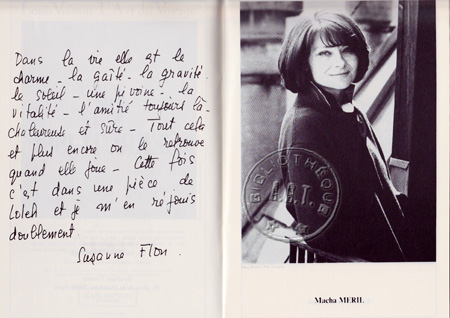 Dans la vie elle est le
charme – la gaîté – la gravité.
le soleil – une pivoine – la
vitalité – l'amitié toujours là
chaleureuse et sûre – Tout cela
et plus encore on le retrouve
quand elle joue – Cette fois
c'est dans une pièce de
Loleh et je m'en réjouis
doublement.
Suzanne Flon.
BIBLIOTHÈQUE
A.R.T.
Macha MERIL